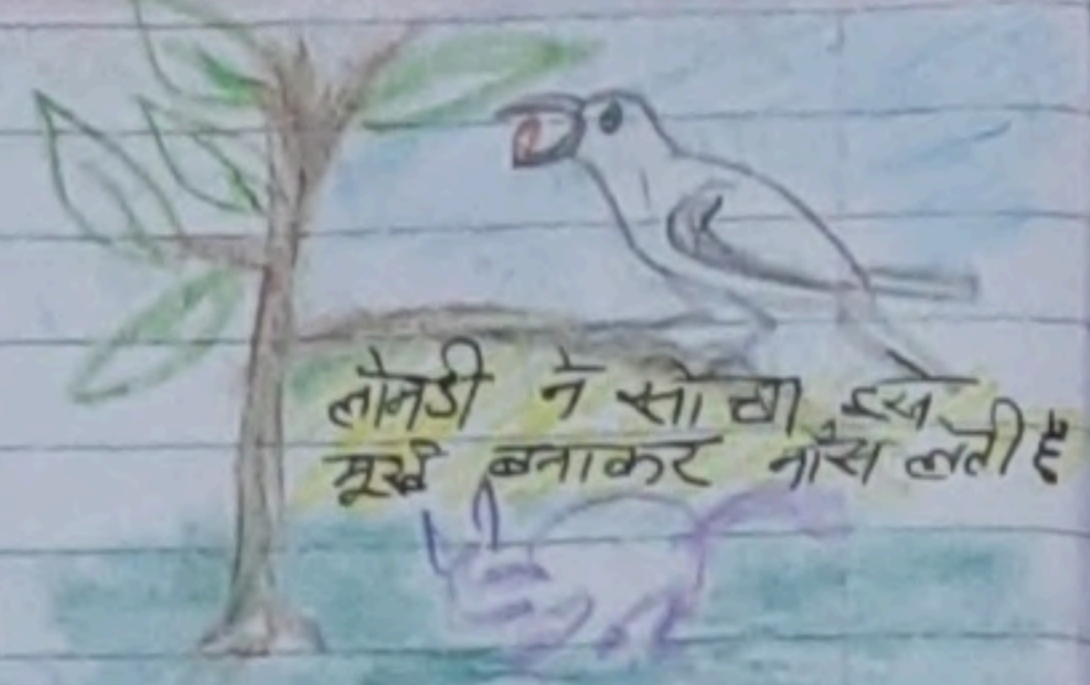 लोमडी ने सोचा इसे
मूर्ख बनाकर माँस लेती है